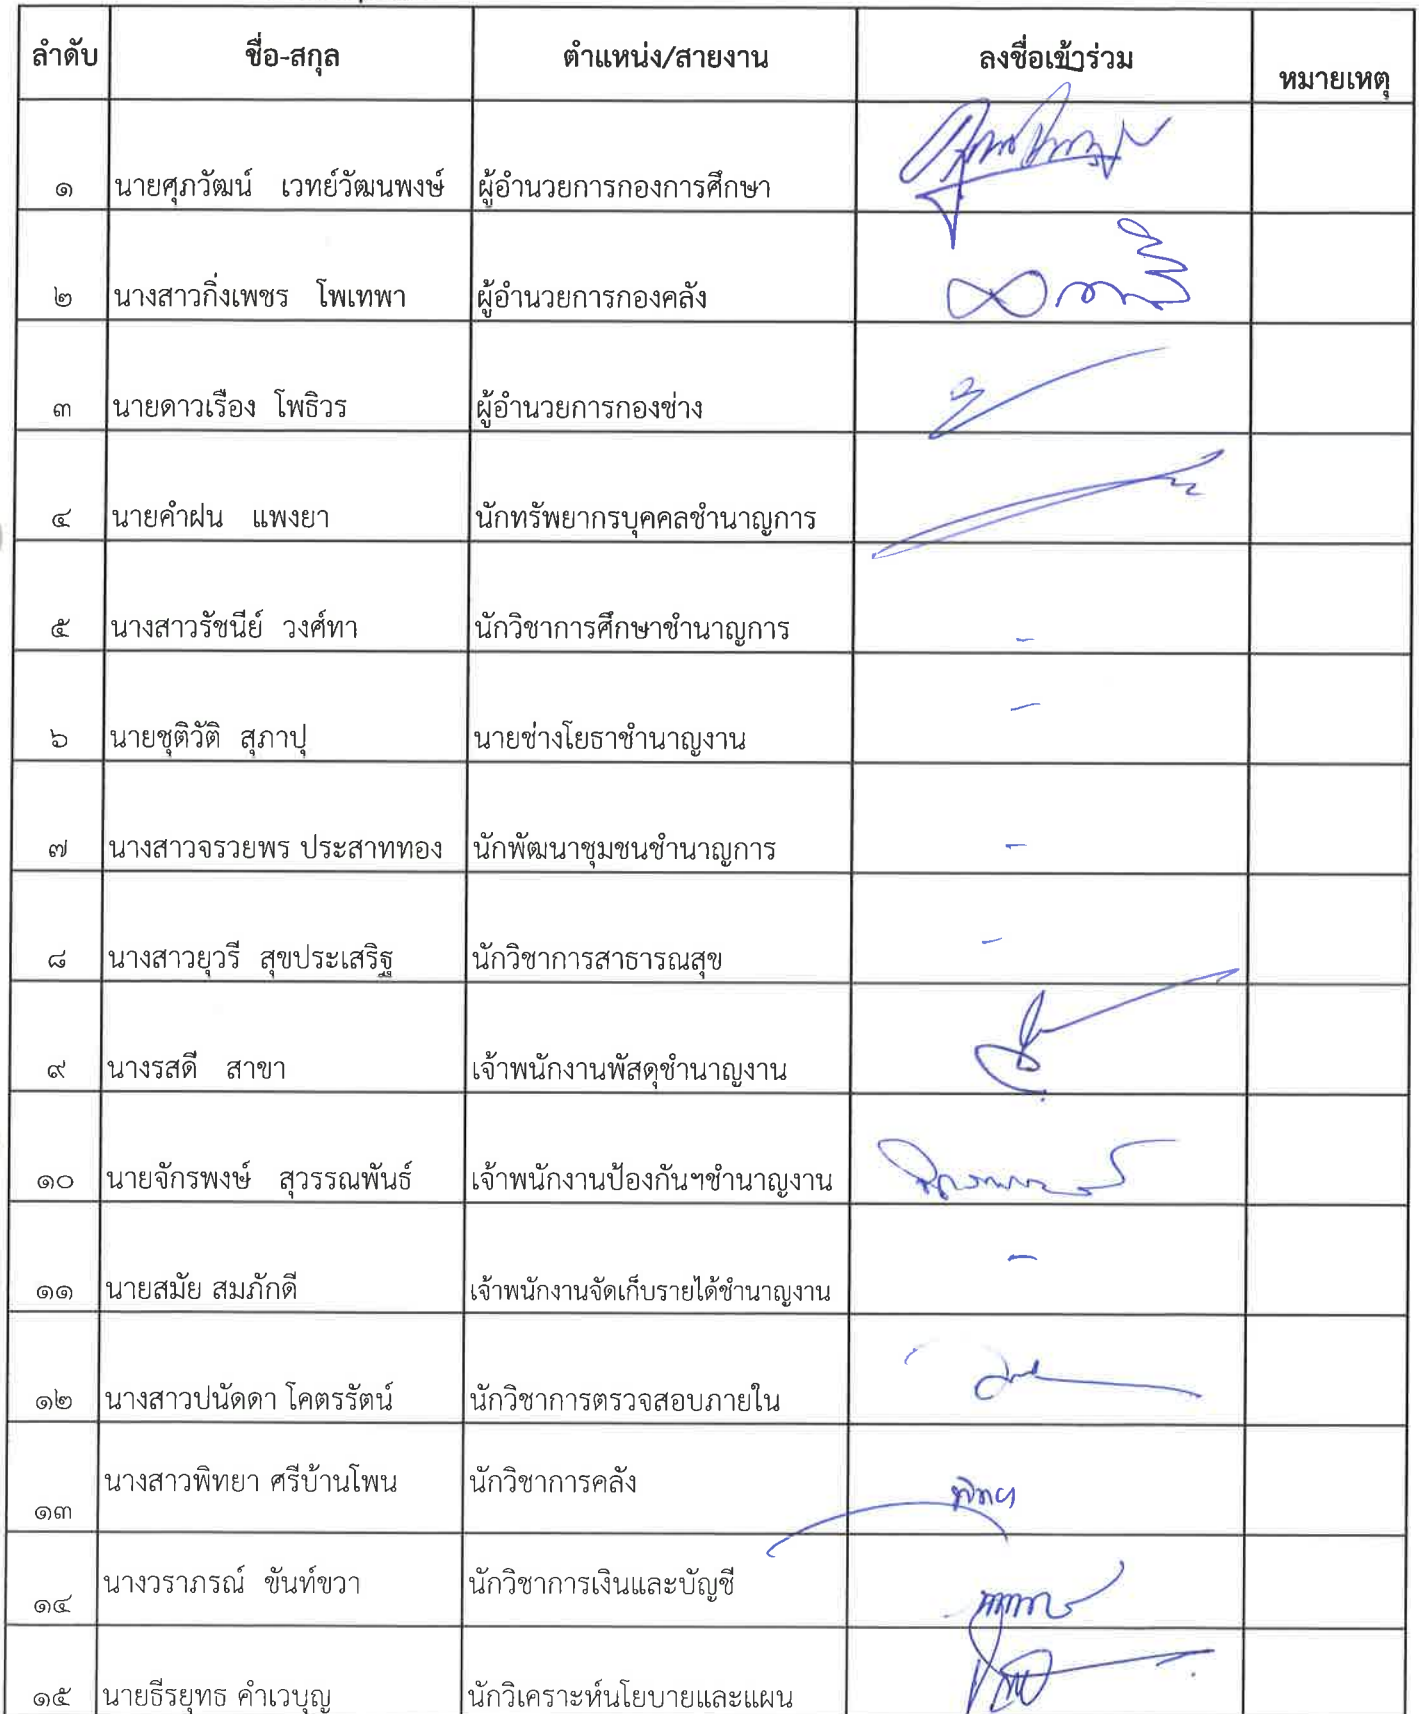 ลำดับ ชื่อ-สกุล ตำแหน่ง/สายงาน ลงชื่อเข้าร่วม หมายเหตุ
๑ นายศุภวัฒน์ เวทย์วัฒนพงษ์ ผู้อำนวยการกองการศึกษา
๒ นางสาวกิ่งเพชร โพเทพา ผู้อำนวยการกองคลัง
๓ นายดาวเรือง โพธิวร ผู้อำนวยการกองช่าง
๔ นายคำฝน แพงยา นักทรัพยากรบุคคลชำนาญการ
๕ นางสาวรัชนีย์ วงศ์ทา นักวิชาการศึกษาชำนาญการ -
๖ นายชุติวัติ สุภาปุ นายช่างโยธาชำนาญงาน -
๗ นางสาวจรวยพร ประสาททอง นักพัฒนาชุมชนชำนาญการ -
๘ นางสาวยุวรี สุขประเสริฐ นักวิชาการสาธารณสุข -
๙ นางรสดี สาขา เจ้าพนักงานพัสดุชำนาญงาน
๑๐ นายจักรพงษ์ สุวรรณพันธ์ เจ้าพนักงานป้องกันฯชำนาญงาน
๑๑ นายสมัย สมภักดี เจ้าพนักงานจัดเก็บรายได้ชำนาญงาน -
๑๒ นางสาวปนัดดา โคตรรัตน์ นักวิชาการตรวจสอบภายใน
๑๓ นางสาวพิทยา ศรีบ้านโพน นักวิชาการคลัง พิทยา
๑๔ นางวราภรณ์ ขันท์ขวา นักวิชาการเงินและบัญชี
๑๕ นายธีรยุทธ คำเวบุญ นักวิเคราะห์นโยบายและแผน